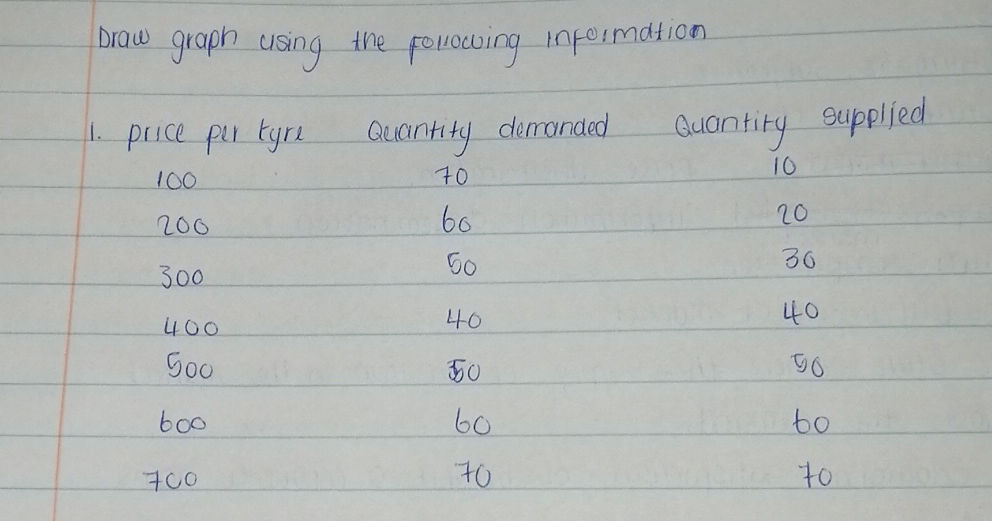 Draw graph using the following information
1. price per tyre Quantity demanded Quantity supplied
100 70 10
200 60 20
300 50 30
400 40 40
500 50 50
600 60 60
700 70 70